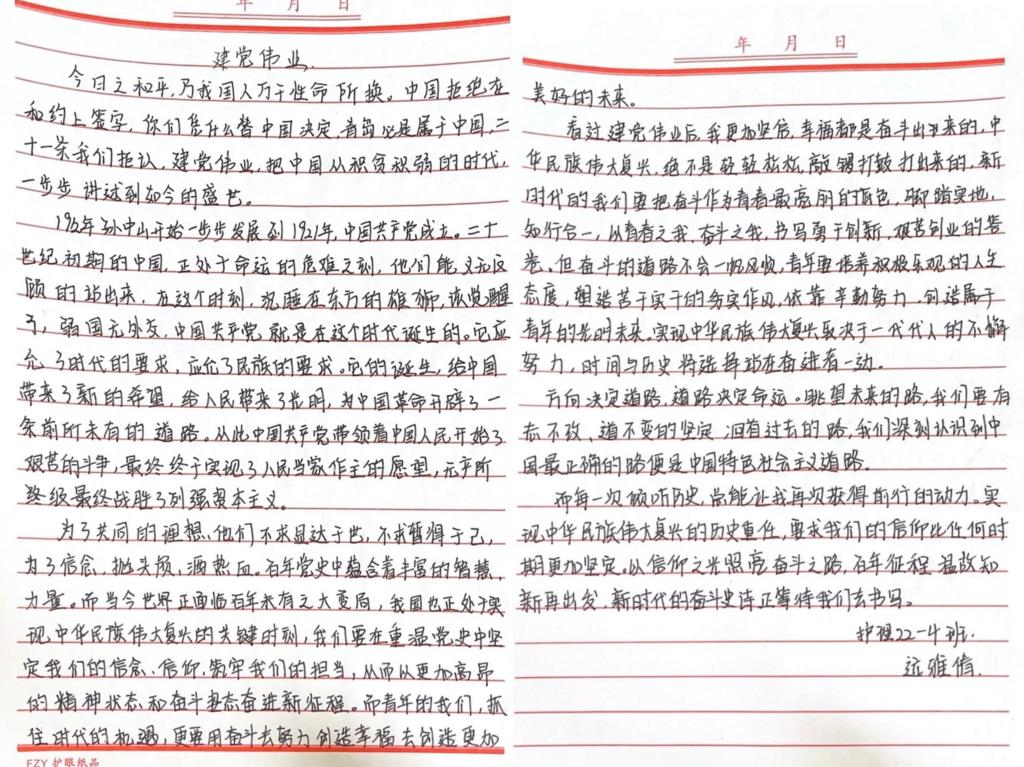 年 月 日
建党伟业.
今日之和平,乃我国人万千性命所换。中国拒绝在
和约上签字,你们凭什么替中国决定,青岛必是属于中国,二
十一条我们拒认,建党伟业,把中国从积贫积弱的时代,
一步步讲述到如今的盛世。
孙中山开始一步步发展到1921年,中国共产党成立。二十
世纪初期的中国,正处于命运的危难之刻,他们能义无反
顾的站出来,在这个时刻,沉睡在东方的雄狮,该觉醒
了,弱国无外交,中国共产党就是在这个时代诞生的。它应
允了时代的要求,应允了民族的要求。它的诞生,给中国
带来了新的希望,给人民带来了光明,为中国革命开辟了一
条前所未有的道路。从此中国共产党带领着中国人民开始了
艰苦的斗争,最终终于实现了人民当家作主的愿望,无产阶
终级最终战胜了列强资本主义。
为了共同的理想,他们不求显达于世,不求暂得于己,
为了信念,抛头颅,洒热血。百年党史中蕴含着丰富的智慧,
力量。而当今世界正面临百年未有之大变局,我国也正处于实
现中华民族伟大复兴的关键时刻,我们要在重温党史中坚
定我们的信念、信仰,筑牢我们的担当,从而从更加高昂
的精神状态和奋斗姿态奋进新征程。而青年的我们,抓
住时代的机遇,更要用奋斗去努力创造幸福去创造更加
FZY 护眼纸品
年 月 日
美好的未来。
看过建党伟业后,我更加坚信,幸福都是奋斗出来的,中
华民族伟大复兴,绝不是轻轻松松,敲锣打鼓打出来的,新
时代的我们要把奋斗作为青春最亮丽的底色,脚踏实地,
知行合一,以青春之我、奋斗之我,书写勇于创新,艰苦创业的答
卷。但奋斗的道路不会一帆风顺,青年要培养积极乐观的人生
态度,塑造苦干实干的务实作风,依靠辛勤努力,创造属于
青年的光明未来。实现中华民族伟大复兴取决于一代代人的不懈
努力,时间与历史将选择站在奋进者一边。
方向决定道路,道路决定命运。眺望未来的路,我们要有
志不改,道不变的坚定,回看过去的路,我们深刻认识到中
国最正确的路便是中国特色社会主义道路。
而每一次倾听历史,总能让我再次获得前行的动力。实
现中华民族伟大复兴的历史重任,要求我们的信仰比任何时
期更加坚定。以信仰之光照亮奋斗之路,百年征程,温故知
新再出发,新时代的奋斗史诗正等待我们去书写。
护理22-4班.